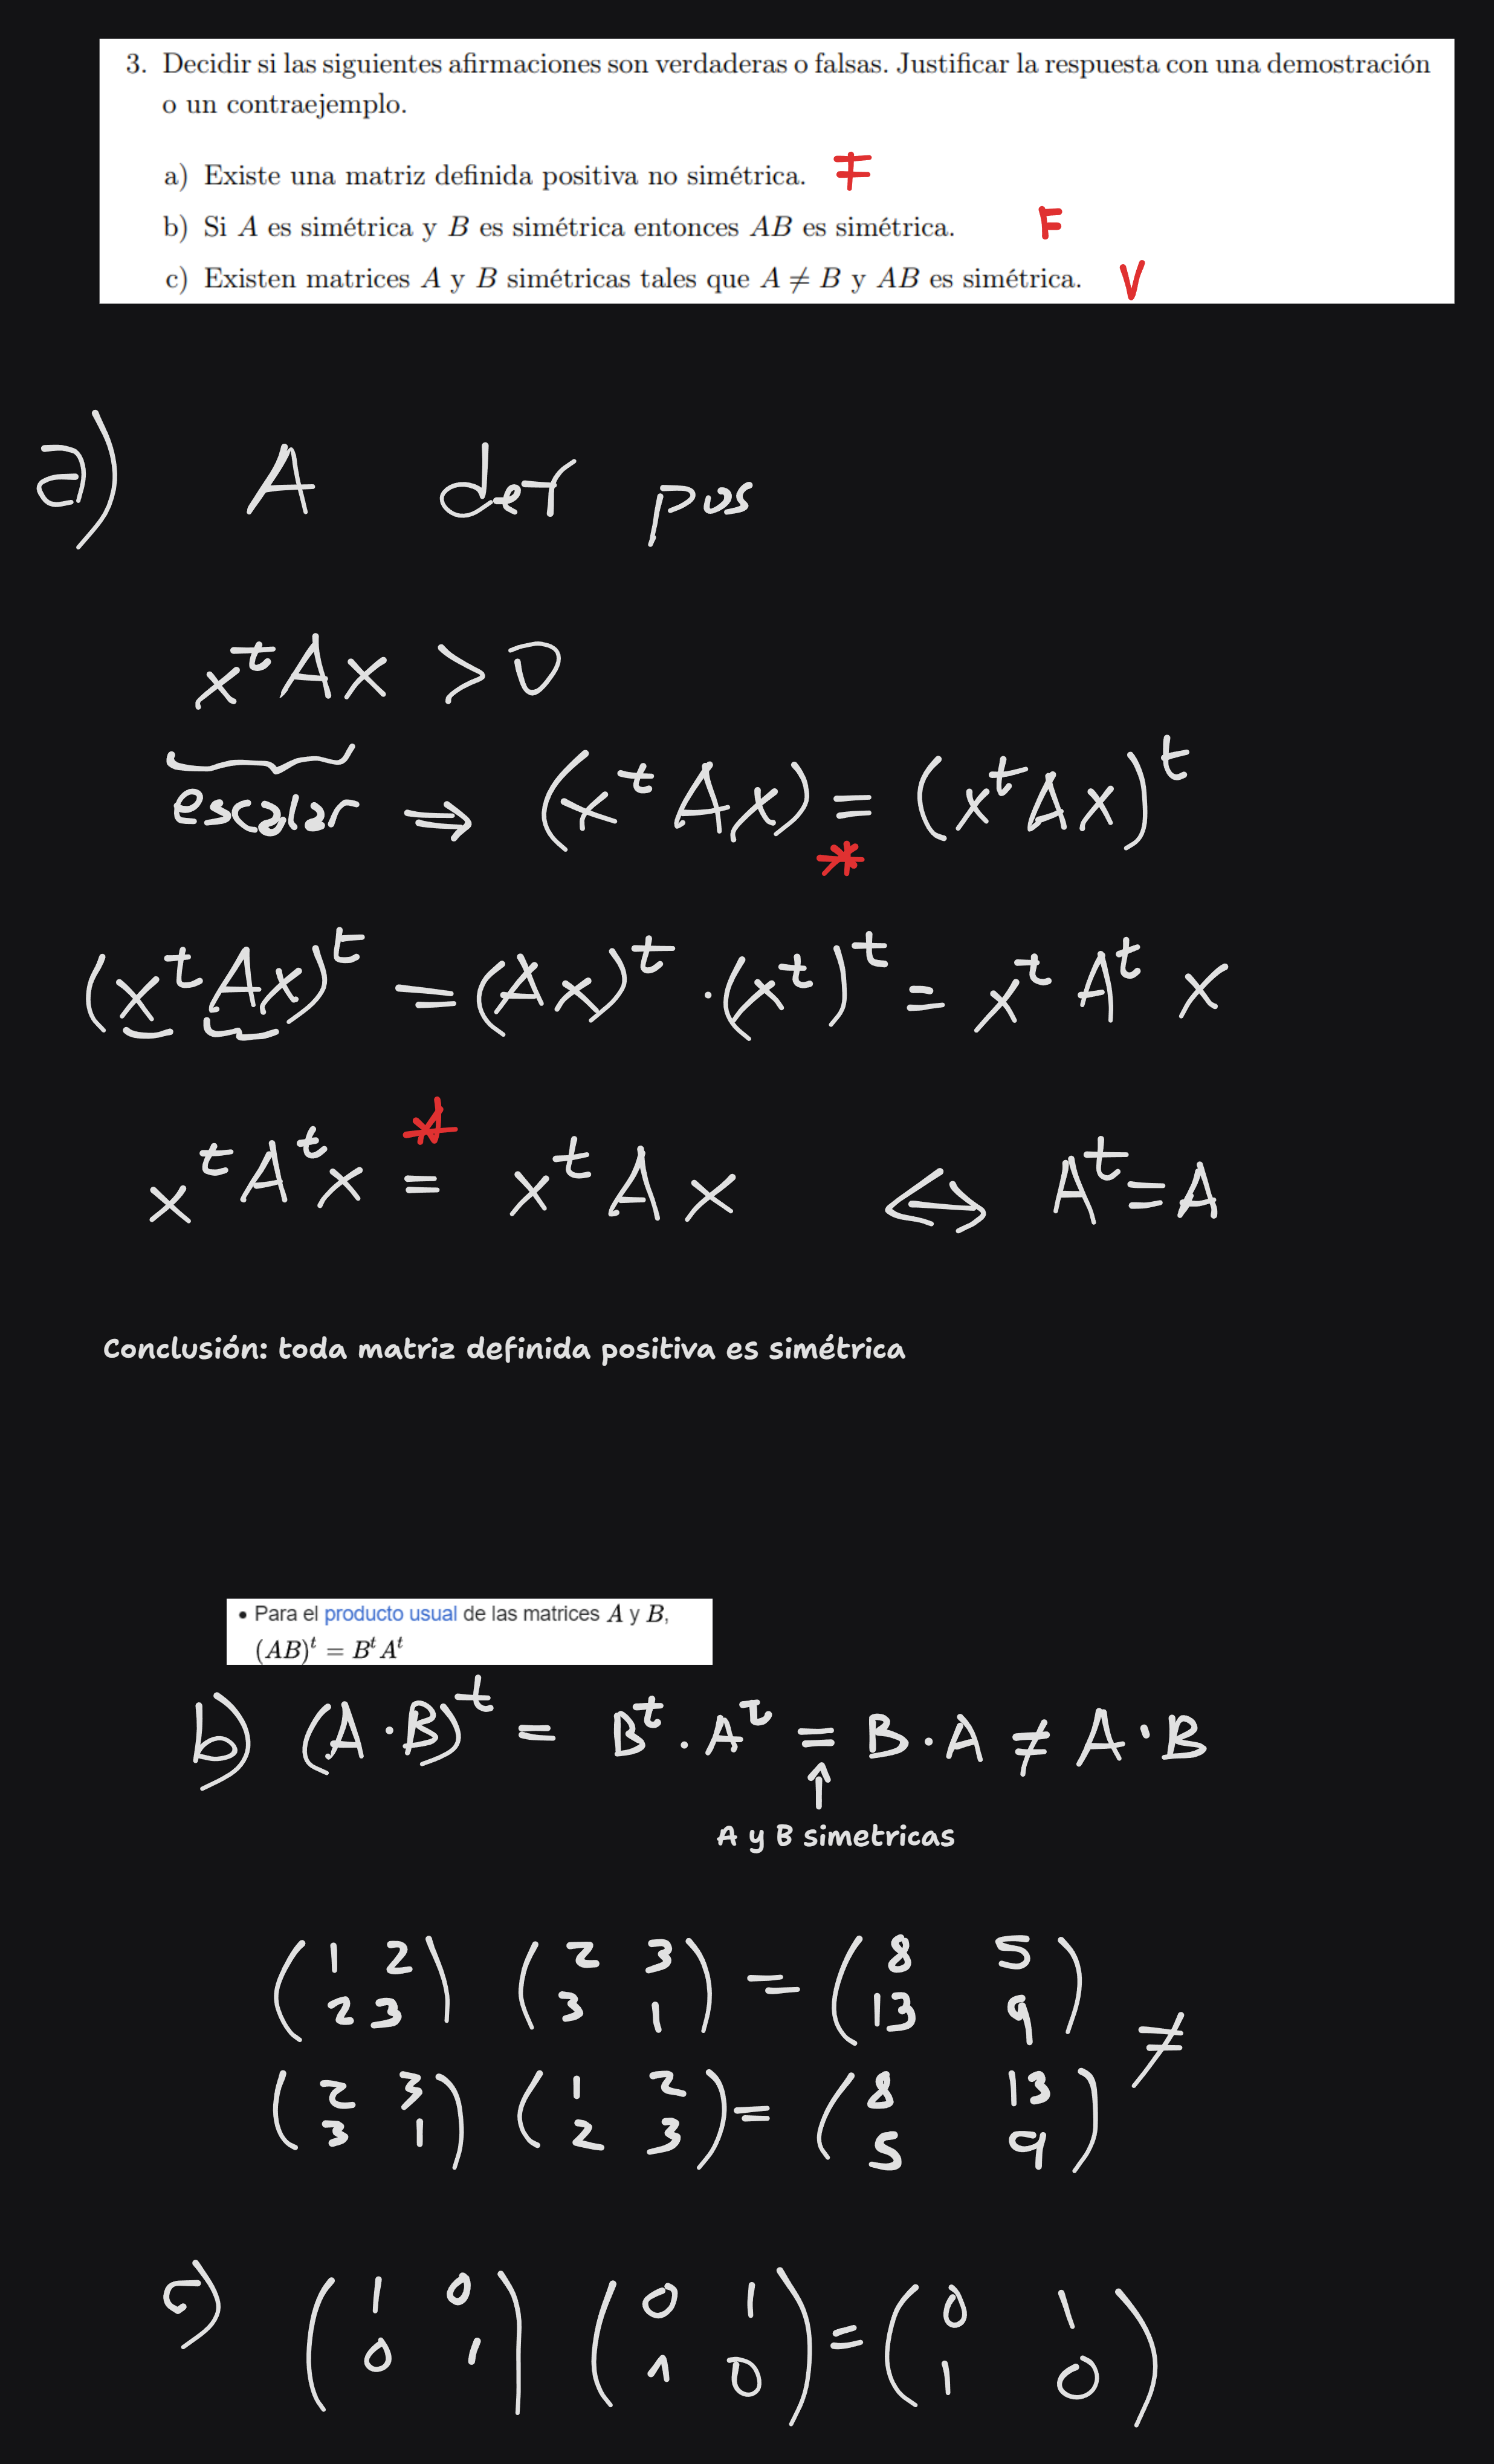 3. Decidir si las siguientes afirmaciones son verdaderas o falsas. Justificar la respuesta con una demostración
o un contraejemplo.
a) Existe una matriz definida positiva no simétrica. F
b) Si A es simétrica y B es simétrica entonces AB es simétrica. F
c) Existen matrices A y B simétricas tales que A ≠ B y AB es simétrica. V
a) A def pos
xᵗAx > 0
escalar ⇒ (xᵗAx) = (xᵗAx)ᵗ
*
(xᵗAx)ᵗ = (Ax)ᵗ · (xᵗ)ᵗ = xᵗ Aᵗ x
*
xᵗAᵗx = xᵗAx ⇔ Aᵗ = A
Conclusión: toda matriz definida positiva es simétrica
• Para el producto usual de las matrices A y B,
(AB)ᵗ = BᵗAᵗ
b) (A·B)ᵗ = Bᵗ·Aᵗ = B·A ≠ A·B
↑
A y B simetricas
(1 2
2 3) (2 3
3 1) = (8 5
13 9)
≠
(2 3
3 1) (1 2
2 3) = (8 13
5 9)
c) (1 0
0 1) (0 1
1 0) = (0 1
1 0)